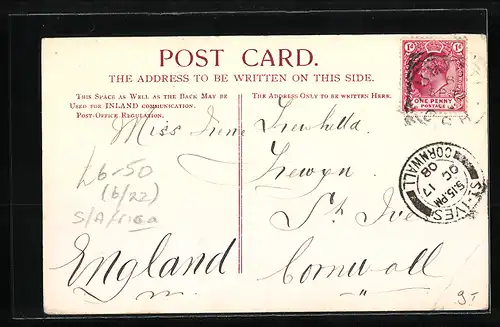 POST CARD.
THE ADDRESS TO BE WRITTEN ON THIS SIDE.
THIS SPACE AS WELL AS THE BACK MAY BE
USED FOR INLAND COMMUNICATION.
POST-OFFICE REGULATION.
THE ADDRESS ONLY TO BE WRITTEN HERE.
1d 1d
ONE PENNY
POSTAGE
Miss Irene Trewhella
Trewyn
St Ives
Cornwall
England
£6-50
(6/22)
S/Africa
ST. IVES
5.15.PM
OC 17
08
CORNWALL
9-